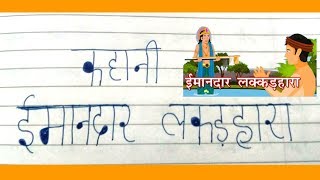 कहानी
ईमानदार लक्कड़हारा
ईमानदार लकड़हारा